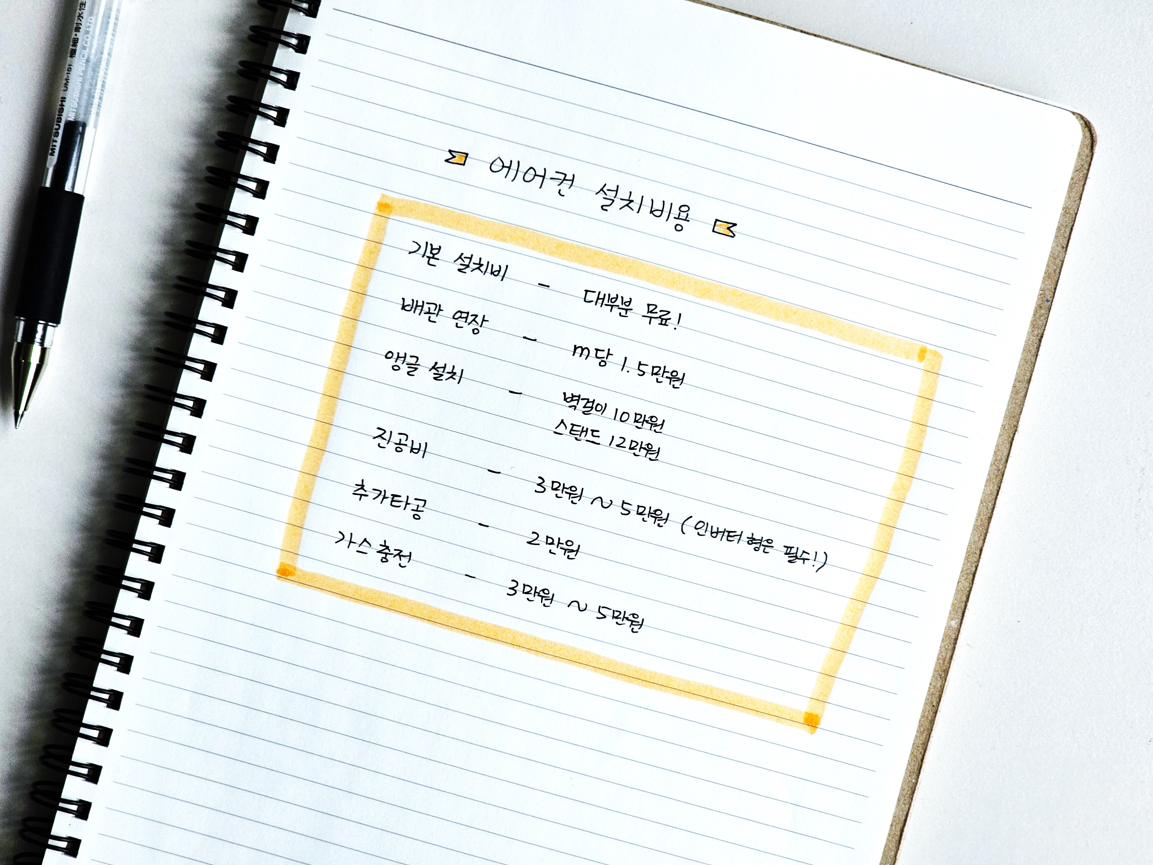 에어컨 설치비용
기본 설치비 - 대부분 무료!
배관 연장 - m당 1.5만원
앵글 설치 - 벽걸이 10만원
스탠드 12만원
진공비 - 3만원 ~ 5만원 (인버터형은 필수!)
추가타공 - 2만원
가스충전 - 3만원 ~ 5만원
MITSUBISHI UM-151 極細・耐水性